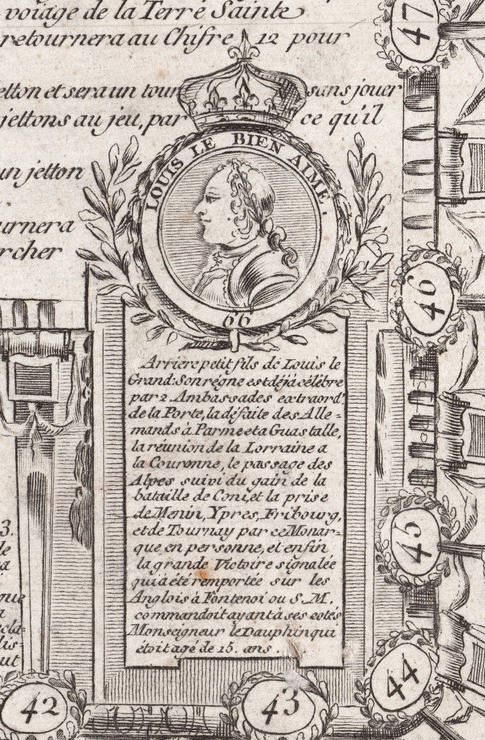 voiage de la Terre Sainte
retournera au Chifre 12 pour
jetton et sera un tour sans jouer
jettons au jeu, par ce qu'il
un jetton
urnera
rcher
LOUIS LE BIEN AIME.
66
Arriere petit fils de Louis le
Grand. Son règne est déjà célèbre
par 2 Ambassades extraord.
de la Porte, la défaite des Alle=
mands à Parme et a Guastalle,
la réunion de la Lorraine a
la Couronne, le passage des
Alpes suivi du gain de la
bataille de Coni, et la prise
de Menin, Ypres, Fribourg,
et de Tournay par ce Monar-
que en personne, et enfin
la grande Victoire signalée
qui a été remportée sur les
Anglois à Fontenoi ou S. M.
commandoit ayant à ses cotés
Monseigneur le Dauphin qui
étoit agé de 15. ans.
47
46
45
44
43
42
3.
le
a
que
a
cla-
dis
aut